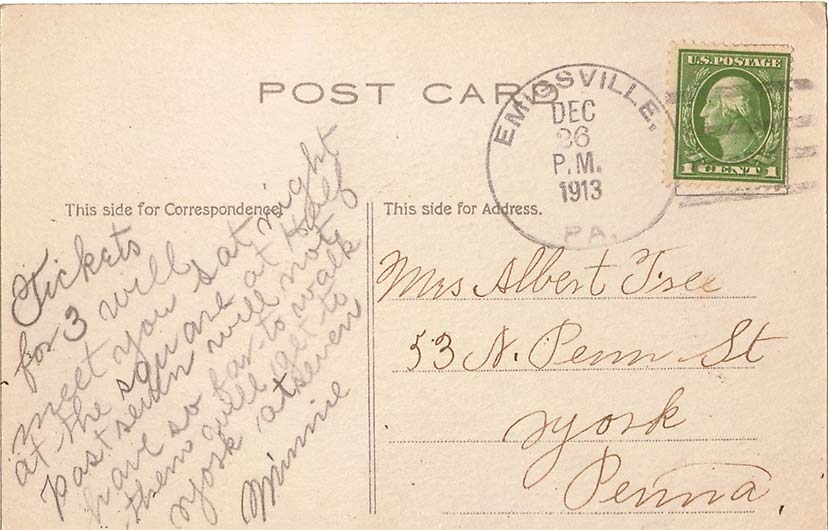 POST CARD
EMIGSVILLE,
DEC
26
P.M.
1913
PA.
U.S. POSTAGE
1 CENT 1
This side for Correspondence.
This side for Address.
Tickets
for 3 will
meet you sat night
at the square at Half
past seven will not
have so far to walk
them will get to
york at seven
Minnie
Mrs Albert
53 N. Penn St
york
Penna.